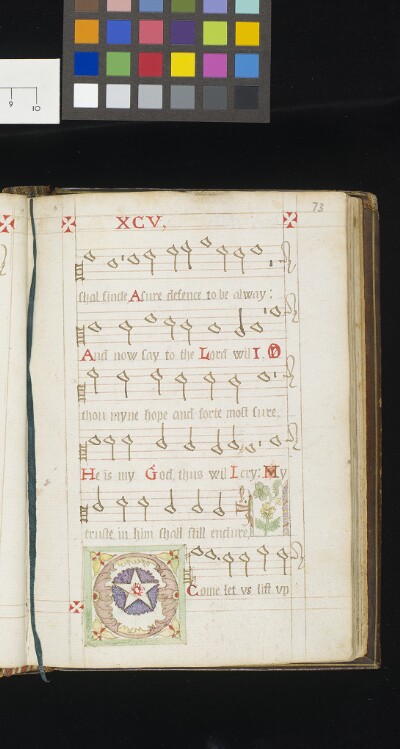 9 10
73
XCV,
shal finde A sure defence to be alway:
And now say to the Lord wil I. O
thou myne hope and forte most sure.
He is my God, thus wil I cry: My
truste in him shall still endure.
Come let vs lift vp